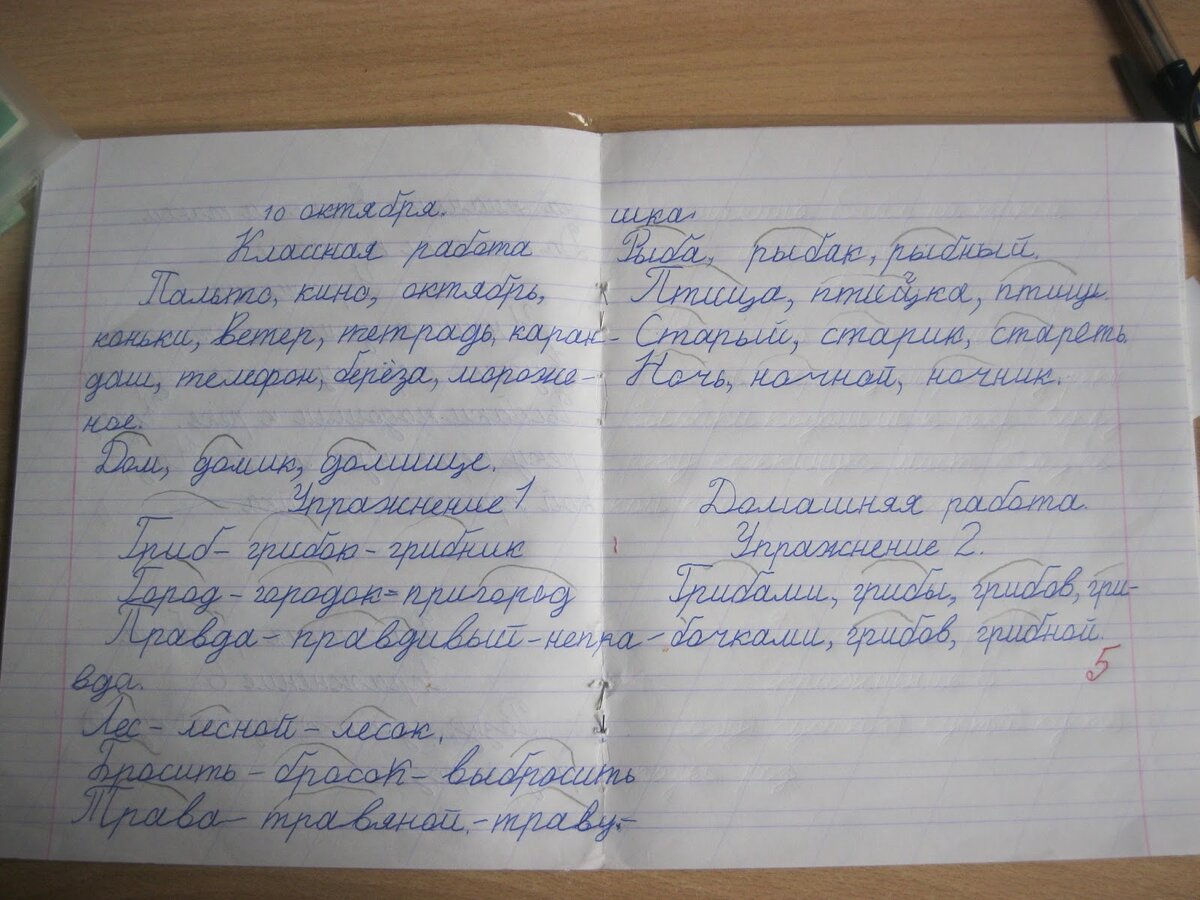 10 октября.
Классная работа
Пальто, кино, октябрь,
коньки, Ветер, тетрадь, каран-
даш, телефон, берёза, мороже-
ное.
Дом, домик, домище.
Упражнение 1
Гриб - грибок - грибник
Город - городок = пригород
Правда - правдивый - непра-
вда.
Лес - лесной - лесок.
Бросить - бросок - выбросить
Трава - травяной. - траву-
шка.
Рыба, рыбак, рыбный.
Птица, птичка, птицы.
Старый, старик, стареть.
Ночь, ночной, ночник.
Домашняя работа.
Упражнение 2.
Грибами, грибы, грибов, гри-
бочками, грибов, грибной.
5